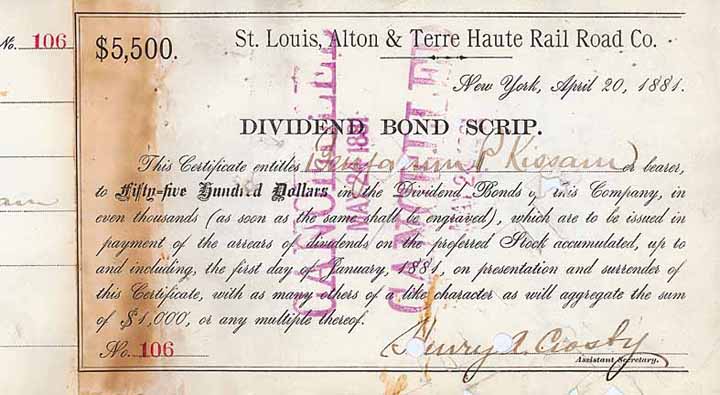 No. 106
$5,500.
St. Louis, Alton & Terre Haute Rail Road Co.
New York, April 20, 1881.
DIVIDEND BOND SCRIP.
This Certificate entitles Benjamin P Kissam or bearer,
to Fifty-five Hundred Dollars in the Dividend Bonds of this Company, in
even thousands (as soon as the same shall be engraved), which are to be issued in
payment of the arrears of dividends on the preferred Stock accumulated, up to
and including, the first day of January, 1881, on presentation and surrender of
this Certificate, with as many others of a like character as will aggregate the sum
of $1,000, or any multiple thereof.
No. 106
Henry A. Crosby
Assistant Secretary.
CANCELLED
MAY 2 1881
CANCELLED
MAY 2